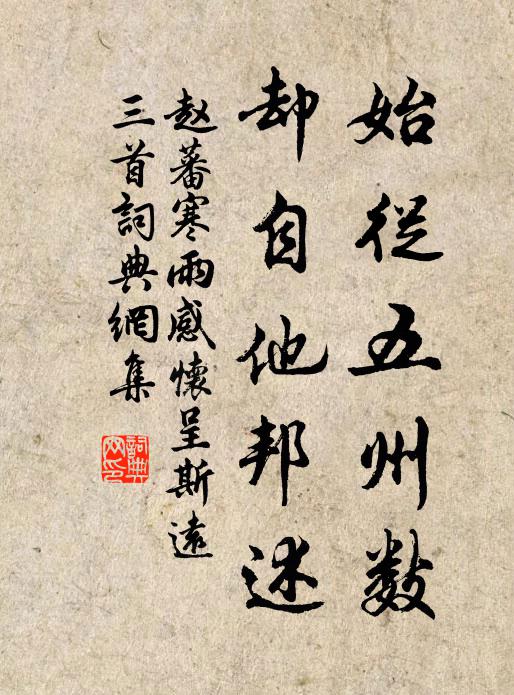 始從五州數
却自他邦述
赵蕃寒雨感懷呈斯遠
三首詞典網集
詞典
网印